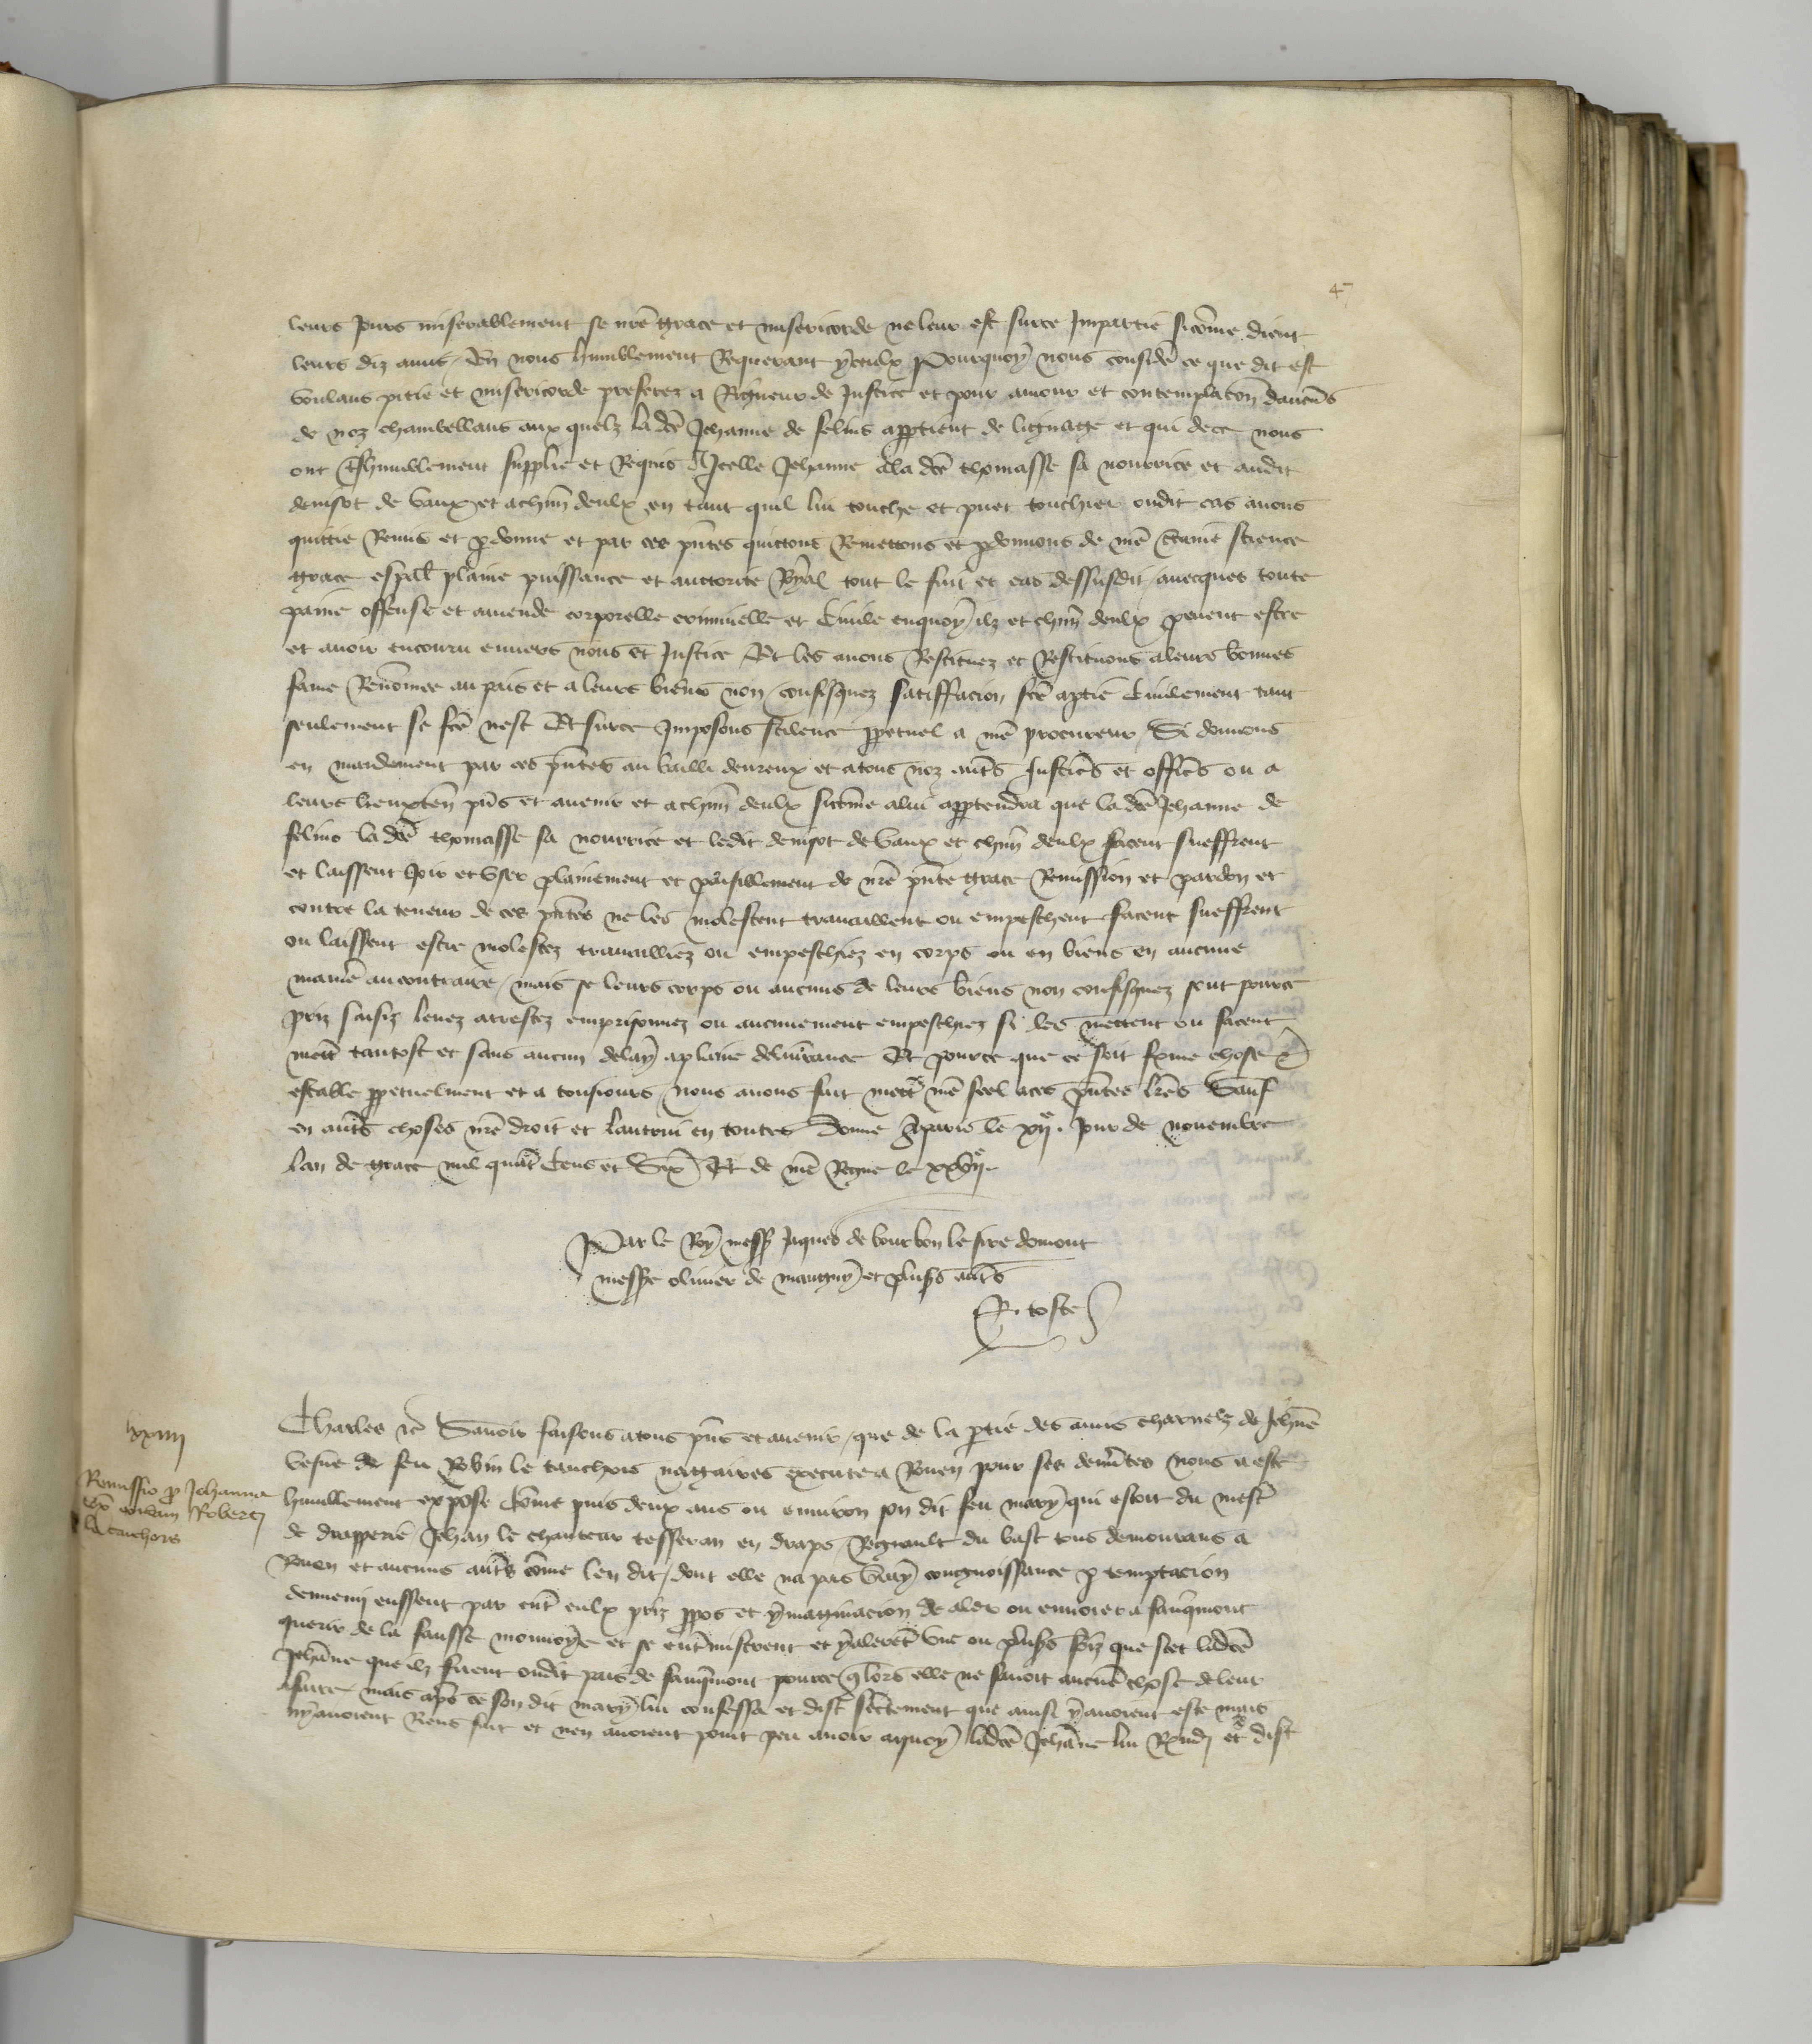 47
leurs jours miserablement se nr̄e grace et misericorde ne leur est surce Impartie sicōme dient
leurs diz amis / En nous humblement Requerant ycelux Pourquoy nous considere ce que dit est
voulans pitie et misericorde preferez a Rigueur de Justice et pour amour et contemplacōn daucūs
de noz chambellans aux quelz lad̄ce Jehanne de felins apptient de lignage et qui dece nous
ont humblement supplie et Requis A Jcelle Jehanne ala dc̄e thomasse sa nourrice et audit
denisot de vaux et achūn deulx en tant quil lui touche et puet touchier oudit cas auons
quittie Remis et pdonne et par ces pn̄tes quittons Remettons et pdonnons de nr̄e certaine science
grace esp̄al plaine puissance et auctorite Royal tout le fait et cas dessusdit / auecques toute
paine offense et amende corporelle criminelle et Ciuile enquoy ilz et chūn deulx peuent estre
et auoir encouru enuers nous et Justice Et les auons Restituez et Restituons aleurs bonnes
fame Renōmee au pais et a leurs biens non confisquez satiffacion fc̄e aptie Ciuilement tant
seulement se fc̄e nest Et surce Imposons scilence ppetuel a nr̄e procureur / Si donnons
en mandement par ces pn̄tes au bailli deureux et atous noz aut̄s Justic̄s et offic̄s ou a
leurs lieuxten̄ pn̄s et auenir et achūn deulx sicōme alui apptendra que la dc̄e Jehanne de
felins la dc̄e thomasse sa nourrice et ledit denisot de vaux et chūn deulx facent sueffrent
et laissent Joir et vser plainement et paisiblement de nr̄e pn̄te grace Remission et pardon et
contre la teneur de ces pn̄tes ne les molestent trauaillent ou empeschent facent sueffrent
ou laissent estre molestez trauailliez ou empeschiez en corps ou en biens en aucune
manie᷑ aucontraire / mais se leurs corps ou aucuns de leurs biens non confisquez sont pource
priz saisiz leuez arrestez emprisonnez ou aucunement empeschiez si les mettent ou facent
mett̄ tantost et sans aucun delay aplaine deliurance Et pource que ce soit ferme chose et
estable ppetuelment et a tousiours nous auons fait mett̄ nr̄e seel aces pn̄tes lr̄es Sauf
en aut̄s choses nr̄e droit et lautrui en toutes Donne A paris le xije. jour de nouembre
Lan de grace mil quat̄ Cens et Six Et de nr̄e Regne le xxvije.
Par le Roy messe Jaques de bourbon le sire domont
messe oliuier de mauguy et plusrs aut̄s
P. toste
lxxiiij
Remissio p Johanna
vx condam Roberti
le tauchors
Charles et̄c Sauoir faisons atous pn̄s et auenir / que de la ptie des amis charnelz de Jehn̄e
vefue de feu Robin le tanchors nagaires execute a Rouen pour ses demerites nous a este
humblement expose Cōme puis deux ans ou enuiron son dit feu mary qui estoit du mest̄
de drapperie / Jehan le chanteur tesseran en draps Regnault du bast tous demourans a
Rouen et aucuns aut̄s cōme len dit / dont elle na pas vray congnoissance p temptacion
dennemj eussent par ent̄ eulx priz ppos et ymaginacion de aler ou enuoier a fauqmont
querir de la fausse monnoye et se ent̄mistrent et y alerēt vne ou plusrs foiz que scet ladc̄e
Jehāne que ilz furent oudit pais de fauqmont pource qlors elle ne sauoit aucūe chose de leur
faire / mais aps̄ ce son dit mary lui confessa et dist secr̄tement que ainsi y auoient este mais
ny auoient Riens fait et nen auoient point peu auoir aquoy ladc̄e Jehāne lui Respondj et dist